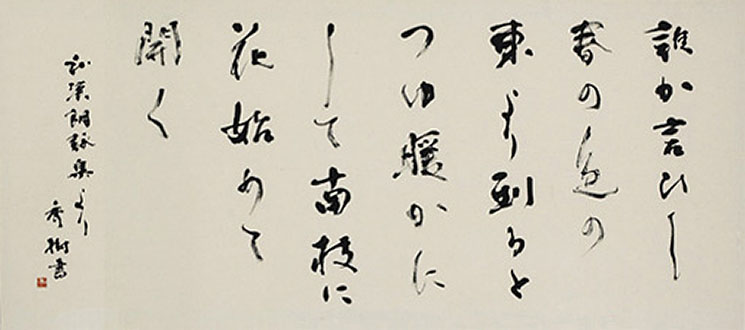 誰か言ひし
春の色の
東より到ると
つゆ暖かに
して南枝に
花始めて
開く
和漢朗詠集より
秀樹書